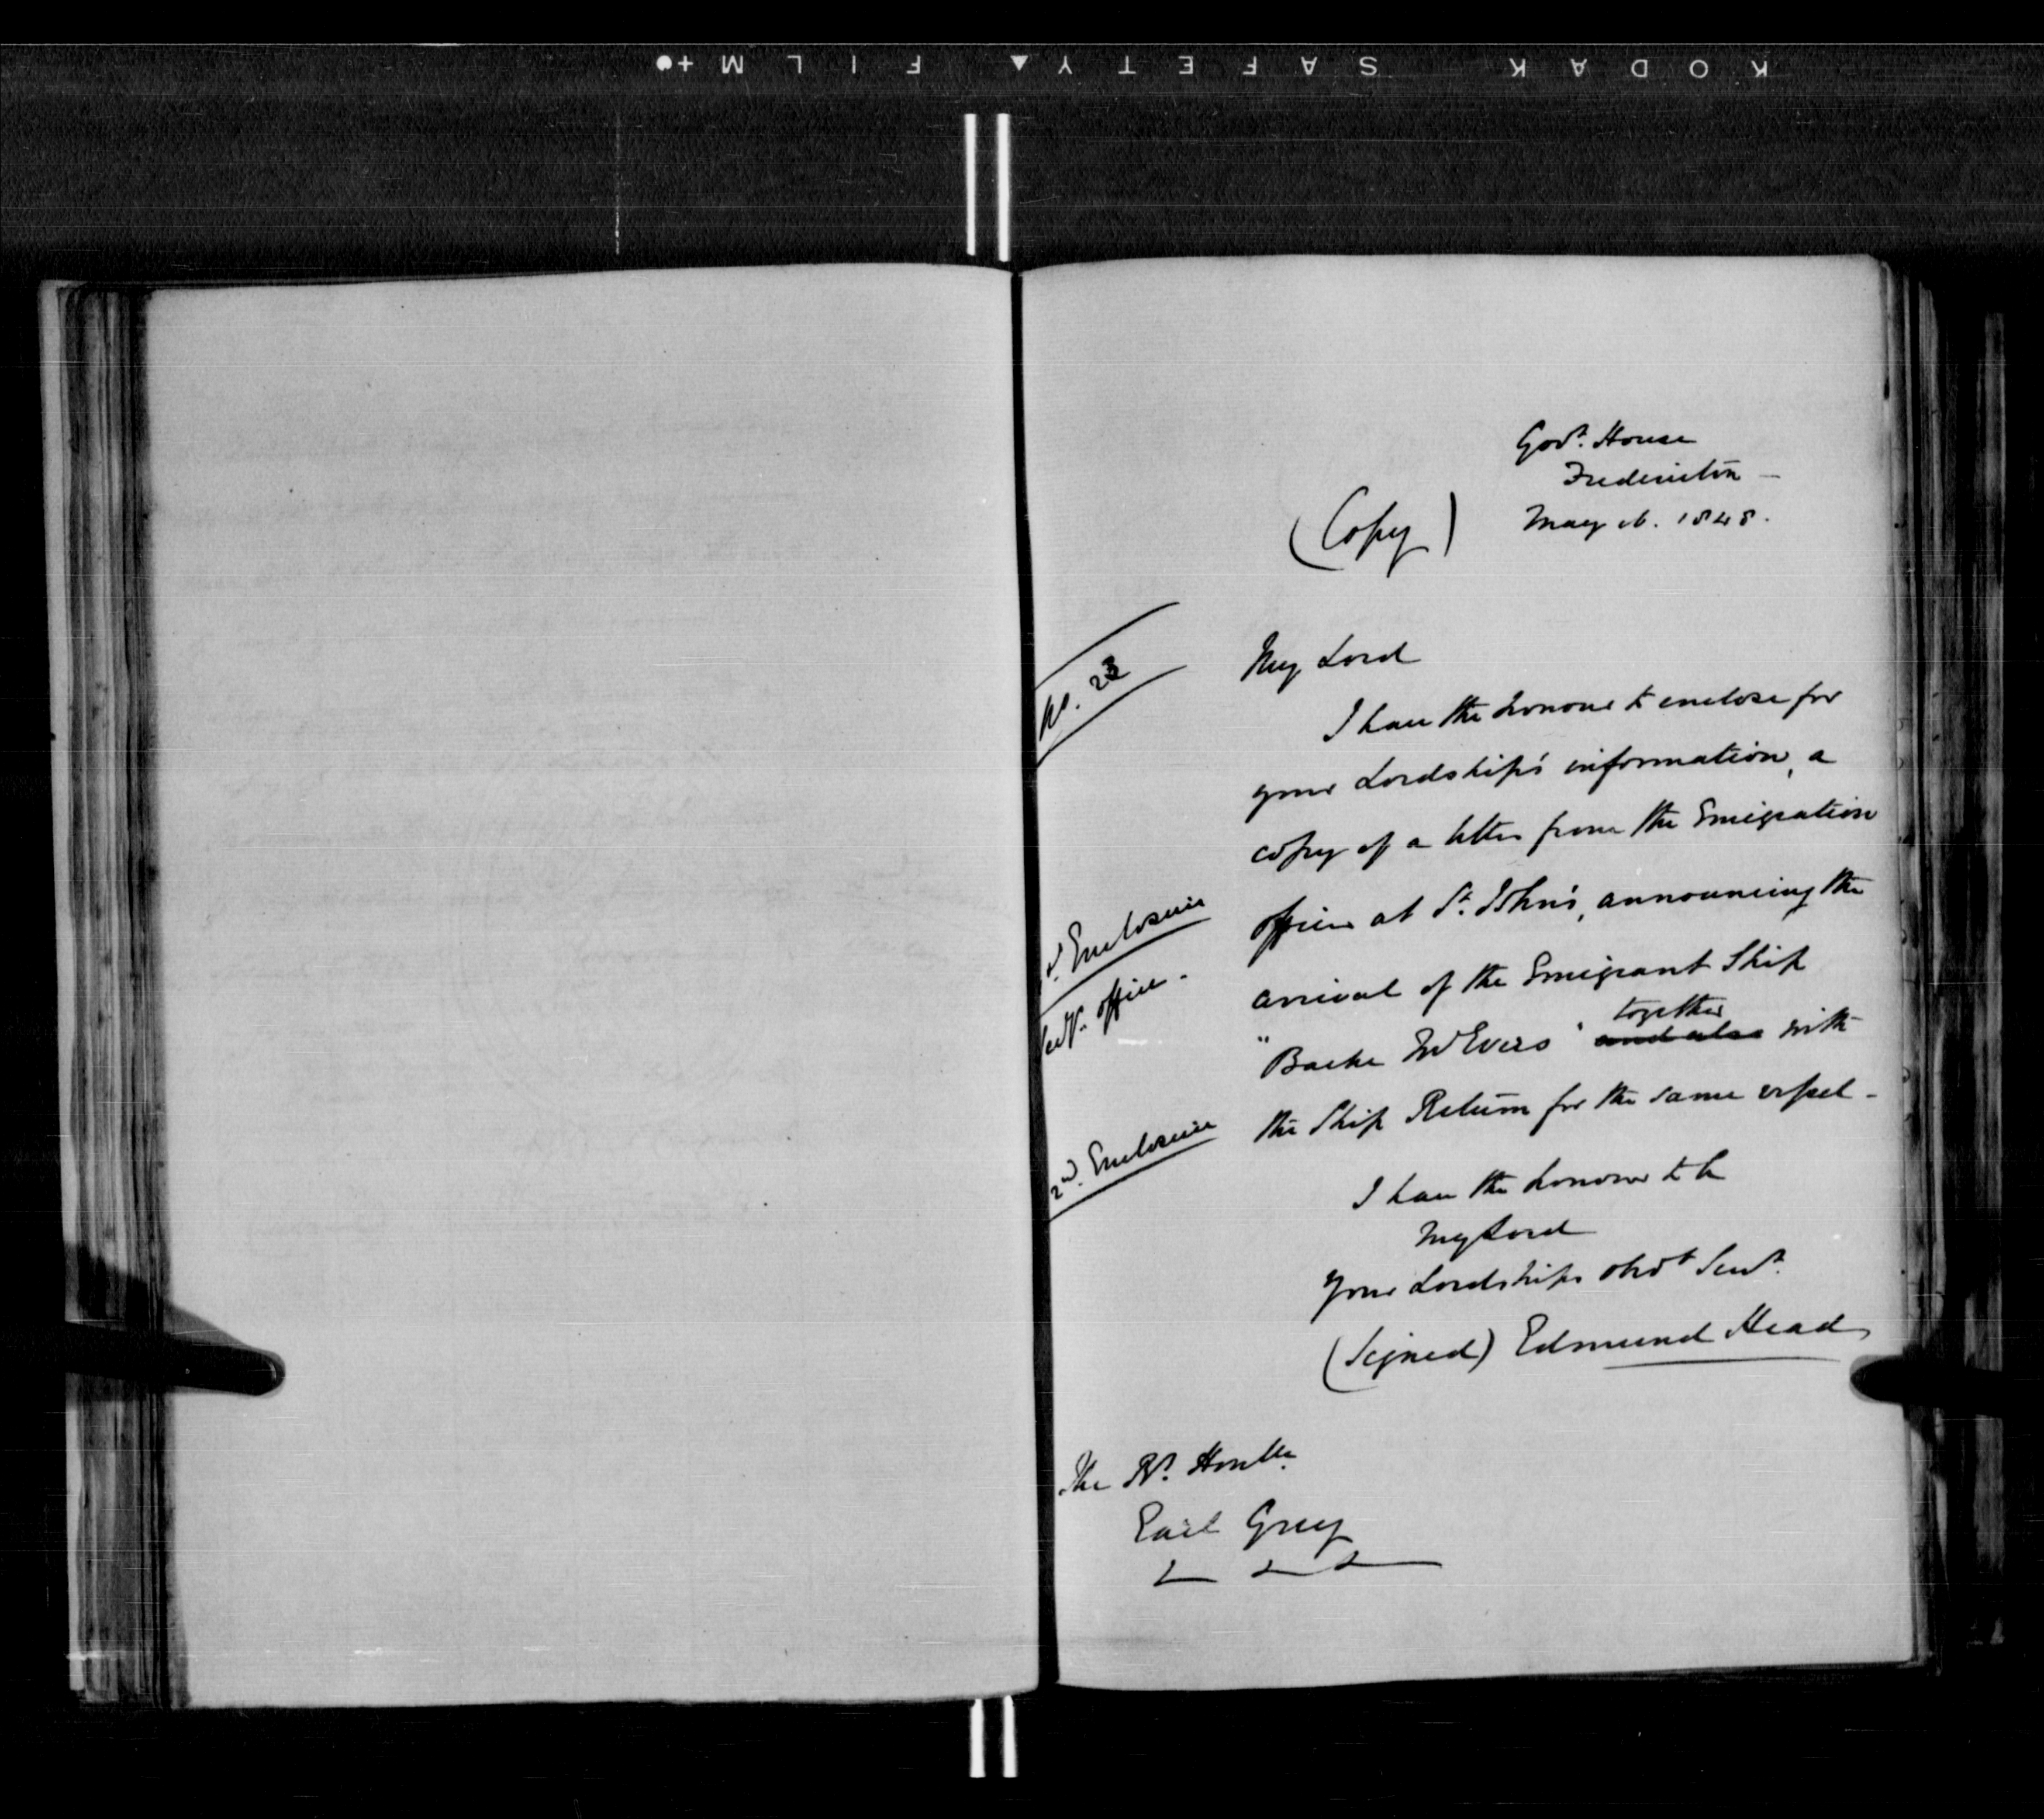 KODAK SAFETY FILM
Govt. House
Fredericton —
(Copy)
May 16. 1848.
No. 23
My Lord
I have the honour to enclose for
your Lordship's information, a
copy of a letter from the Emigration
1st. Enclosure
officer at St. John's, announcing the
office -
arrival of the Emigrant Ship
together
"Barke McEvers" and also with
2nd. Enclosure
the Ship Return for the same vessel -
I have the honour to be
My Lord
Your Lordships obdt Servt.
(Signed) Edmund Head
The Rt. Honble.
Earl Grey